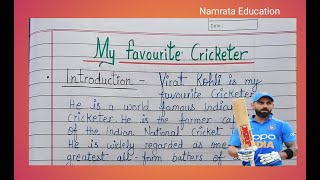 Namrata Education
Date:
My favourite Cricketer
• Introduction - Virat Kohli is my
favourite Cricketer
He is a world famous Indian
Cricketer. He is the farmer ca
of the Indian National Cricket
He is widely regarded as one
greatest all-from batters of
OPPO
INDIA